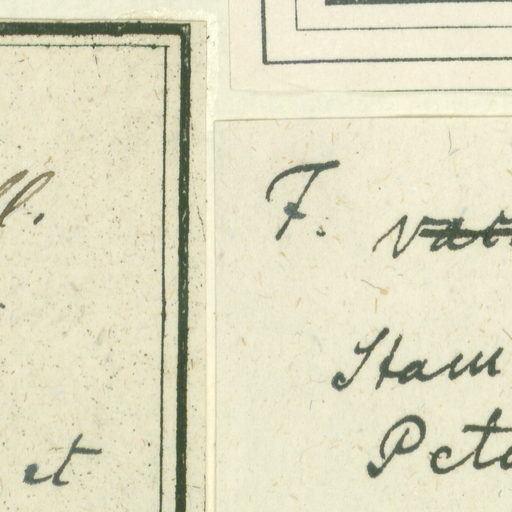 ll.
et
F. var
Stam
Peta